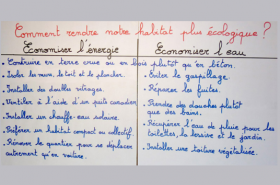 Comment rendre notre habitat plus écologique ?
Economiser l'énergie
Economiser l'eau
• Construire en terre crue ou en bois plutôt qu'en béton.
• Isoler les murs, le toit et le plancher.
• Installer des doubles vitrages.
• Ventiler à l'aide d'un puits canadien.
• Installer un chauffe-eau solaire.
• Préférer un habitat compact ou collectif
• Rénover le quartier pour se déplacer
autrement qu'en voiture.
• Eviter le gaspillage.
• Réparer les fuites.
• Prendre des douches plutôt
que des bains.
• Récupérer l'eau de pluie pour les
toilettes, la lessive et le jardin.
• Installer une toiture végétalisée.